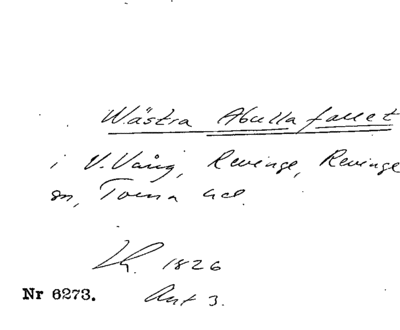 Wästra Abulla fallet
i V. Vång, Revinge, Revinge
sn, Torna hd.
Lh. 1826
Akt 3.
Nr 6273.